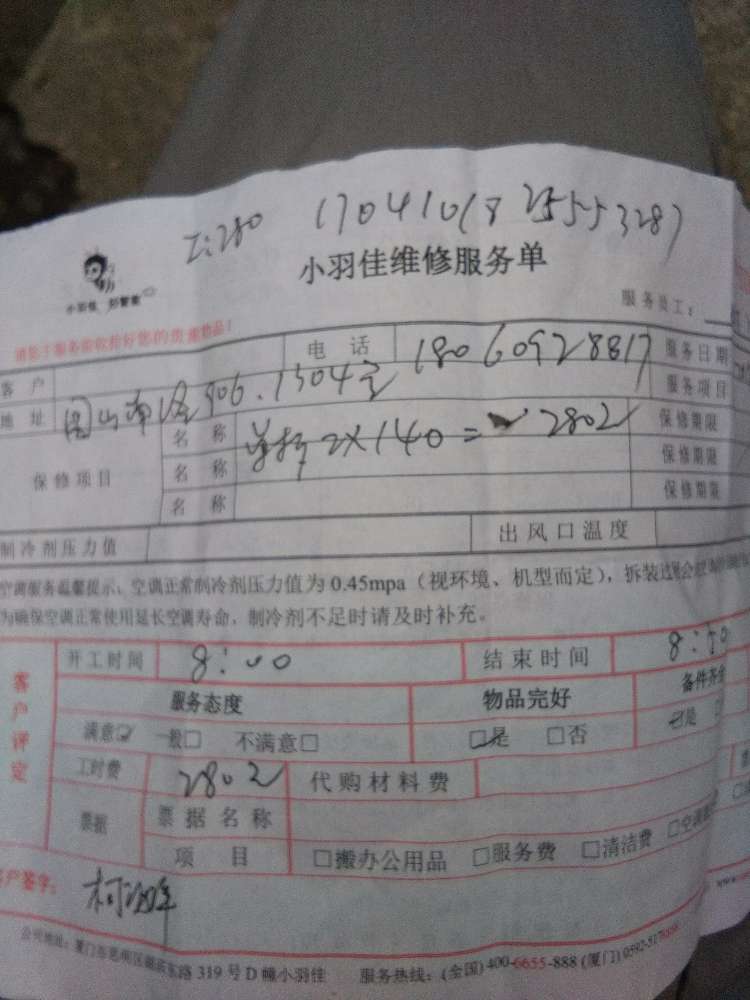 I:280 17041018 25553287
小羽佳维修服务单
小羽佳 彭慧能
服务员工:
请您于服务前收拾好您的贵重物品!
客户 电话 18060928817 服务日期
地址 906.1304室 服务项目
保修项目
名称 单拆 2X140= 280元 保修期限
名称 保修期限
名称 保修期限
制冷剂压力值 出风口温度
空调服务温馨提示:空调正常制冷剂压力值为0.45mpa(视环境、机型而定),拆装过程会
为确保空调正常使用延长空调寿命,制冷剂不足时请及时补充。
客户评定
开工时间 8:00 结束时间 8:50
服务态度 物品完好 备件齐全
满意☑ 一般□ 不满意□ ☑是 □否 ☑是
工时费 280元 代购材料费
票据 票据名称
项目 □搬办公用品 □服务费 □清洁费 □空调
客户签字:
公司地址:厦门市思明区湖滨东路319号D幢小羽佳 服务热线:(全国)400-6655-888 (厦门)0592-517